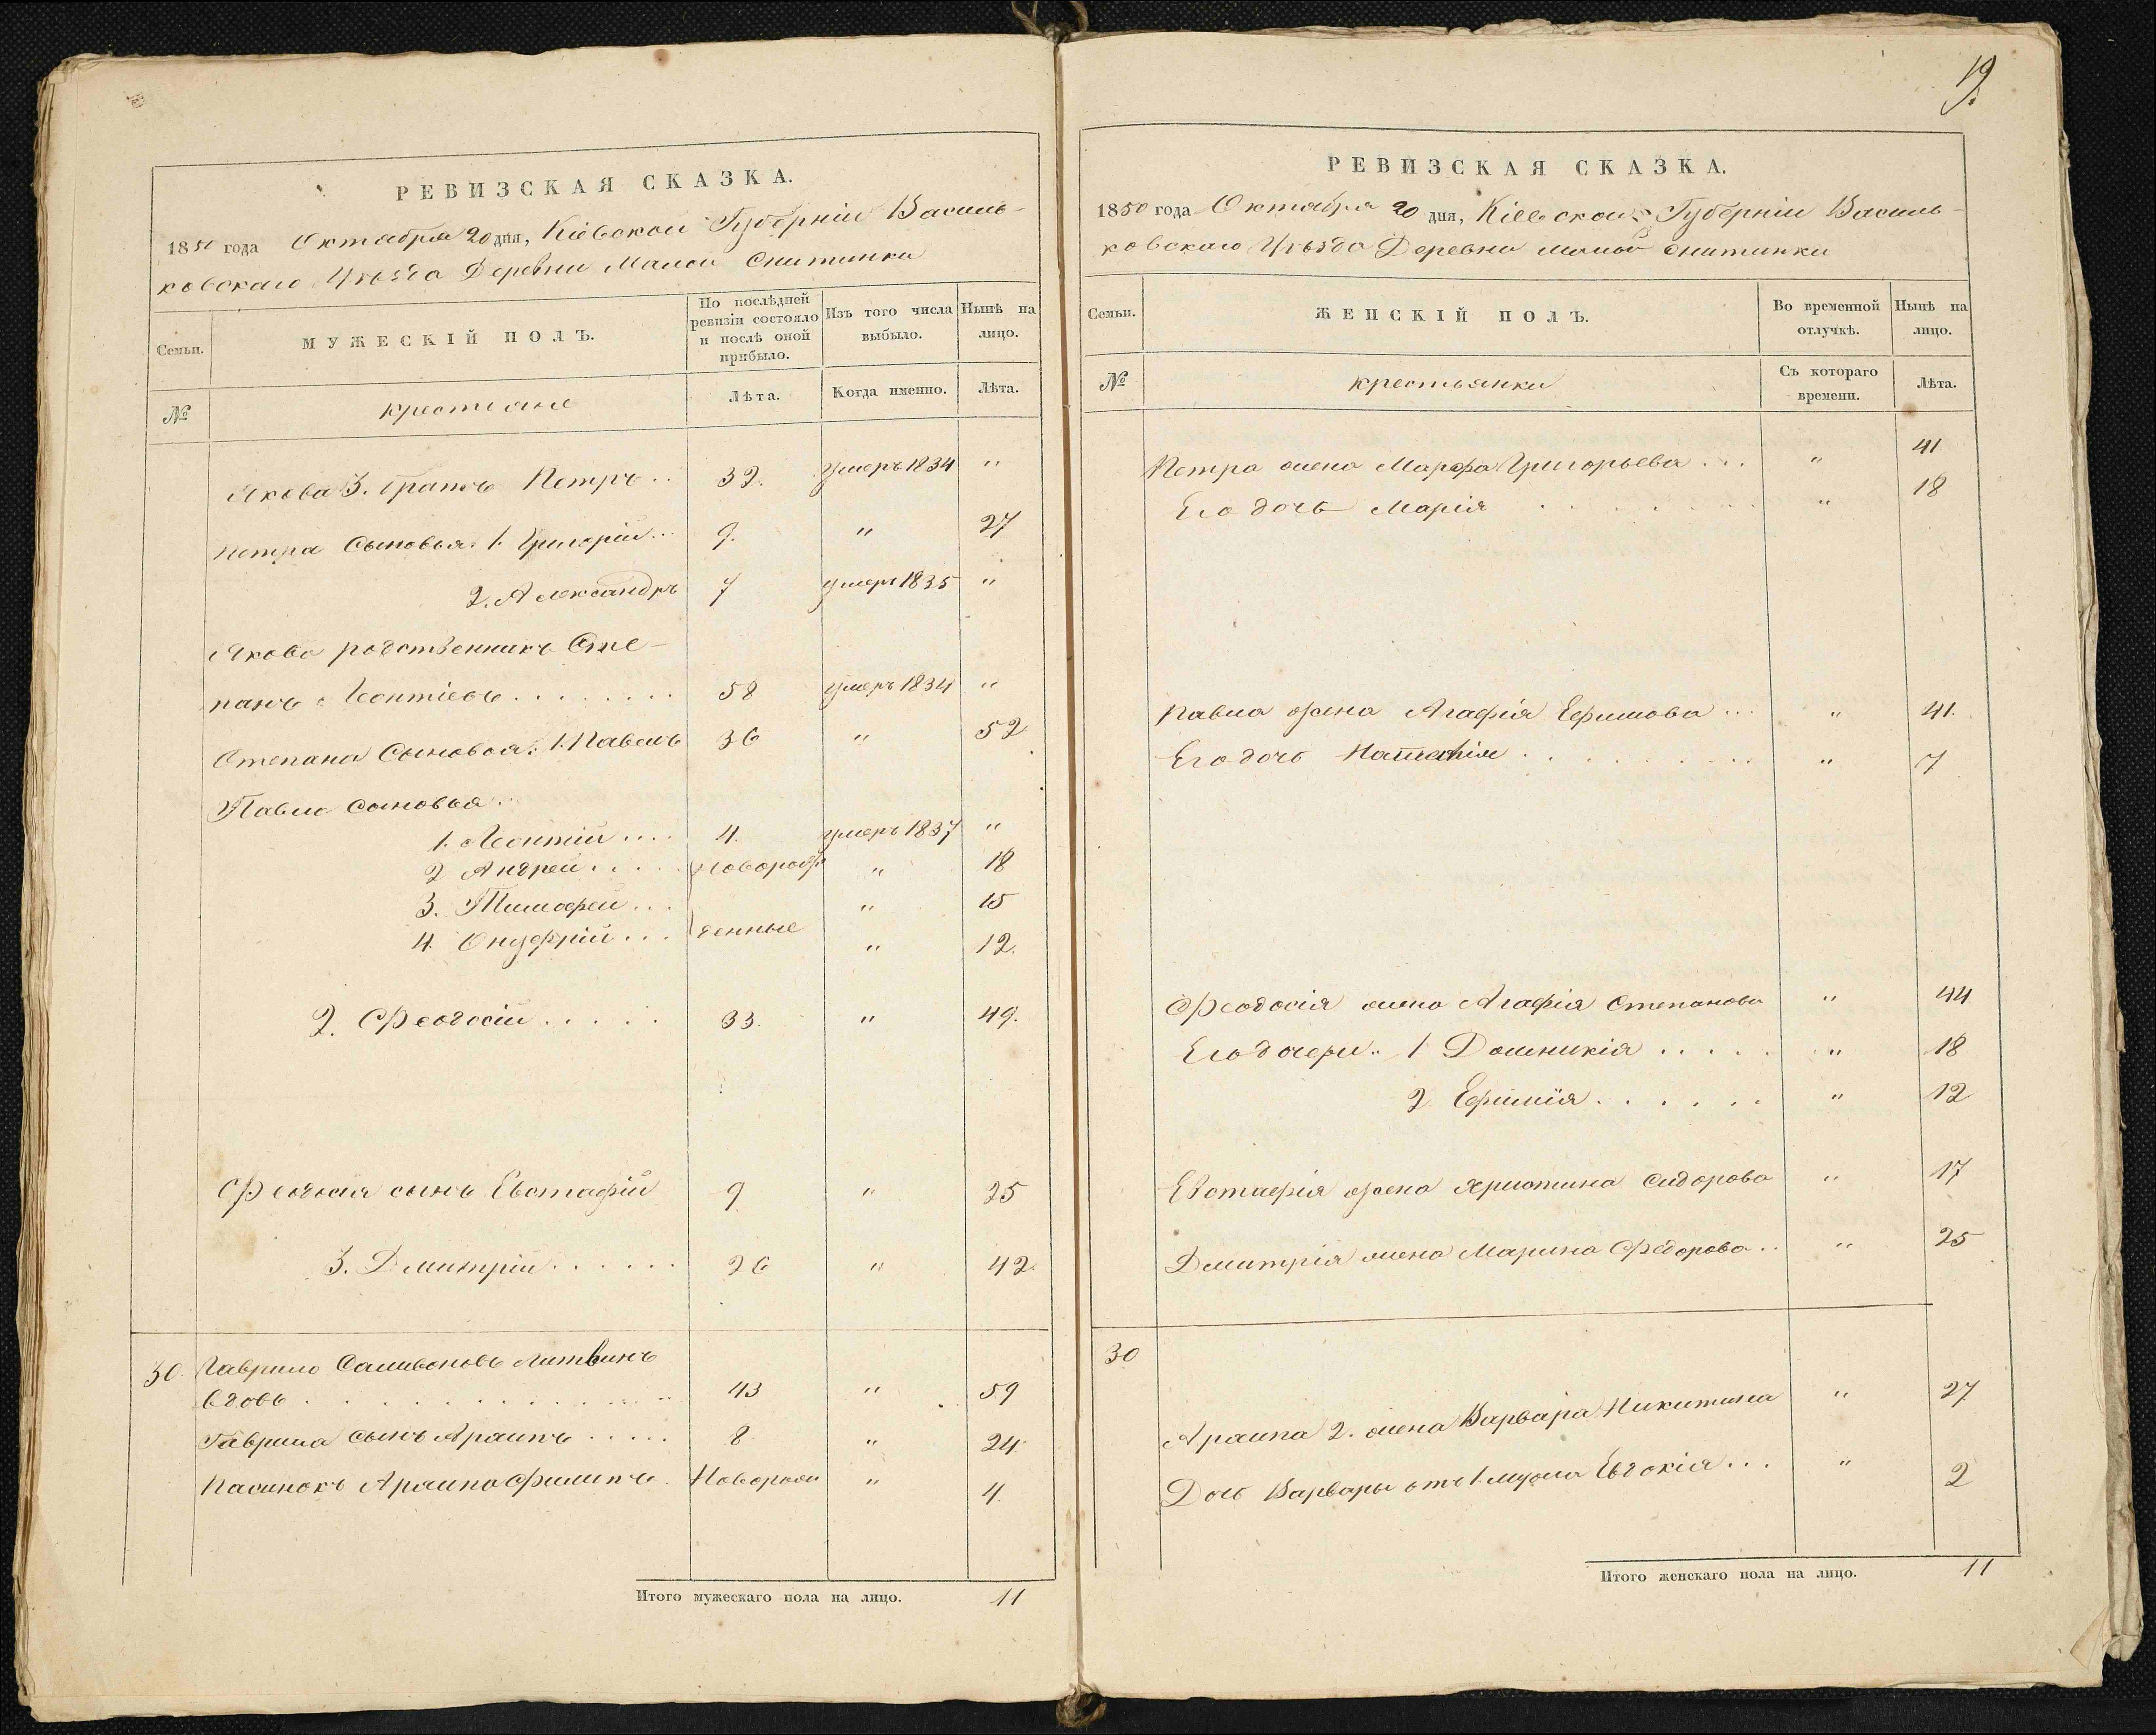 РЕВИЗСКАЯ СКАЗКА.
1850 года Октября 20 дня, Кіевской Губерніи Василь-
ковскаго Уѣзда Деревни Малой Снитинки
Семьи.
МУЖЕСКІЙ ПОЛЪ.
По послѣдней ревизіи состояло и послѣ оной прибыло.
Изъ того числа выбыло.
Нынѣ на лицо.
№
крестьяне
Лѣта.
Когда именно.
Лѣта.
Якова 3. братъ Петръ .. 32. умеръ 1834 "
Петра Сыновья: 1. Григорій ... 9. " 27
2. Александръ 7 умеръ 1835 "
Якова родственникъ Сте-
панъ Леонтіевъ ........ 58 умеръ 1834 "
Степана Сыновья: 1. Павелъ 36 " 52
Павла сыновья:
1. Леонтій .... 4. умеръ 1837 "
2 Андрей ..... новорож " 18
3. Тимофей ... " 15
4. Онуфрій ... денные " 12.
2. Феодосій ..... 33. " 49.
Феодосія сынъ Евстафій 9 " 25
3. Дмитрій ...... 26 " 42.
30. Гаврило Самивоновъ Литвинъ
вдовъ ............ 43 " 59
Гаврила сынъ Архипъ ..... 8 " 24.
Пасинокъ Архипа Филипъ Новорож " 4.
Итого мужескаго пола на лицо. 11
19.
РЕВИЗСКАЯ СКАЗКА.
1850 года Октября 20 дня, Кіевской Губерніи Василь-
ковскаго Уѣзда Деревни малой Снитинки
Семьи.
ЖЕНСКІЙ ПОЛЪ.
Во временной отлучкѣ.
Нынѣ на лицо.
№
крестьянки
Съ котораго времени.
Лѣта.
Петра жена Марфа Григорьева ... " 41
Его дочь Марія ....... " 18
Павла жена Агафія Ефимова ... " 41.
Его дочь Наталія ......... " 7
Феодосія жена Агафія Степанова " 44
Его дочери: 1 Домникія ..... " 18
2 Ефимія ...... " 12
Евстафія жена Христина Сидорова " 17
Дмитрія жена Марина Федорова .. " 25
30
Архипа 2. жена Варвара Никитина " 27
Дочь Варвары отъ 1. мужа Евдокія ... " 2
Итого женскаго пола на лицо. 11